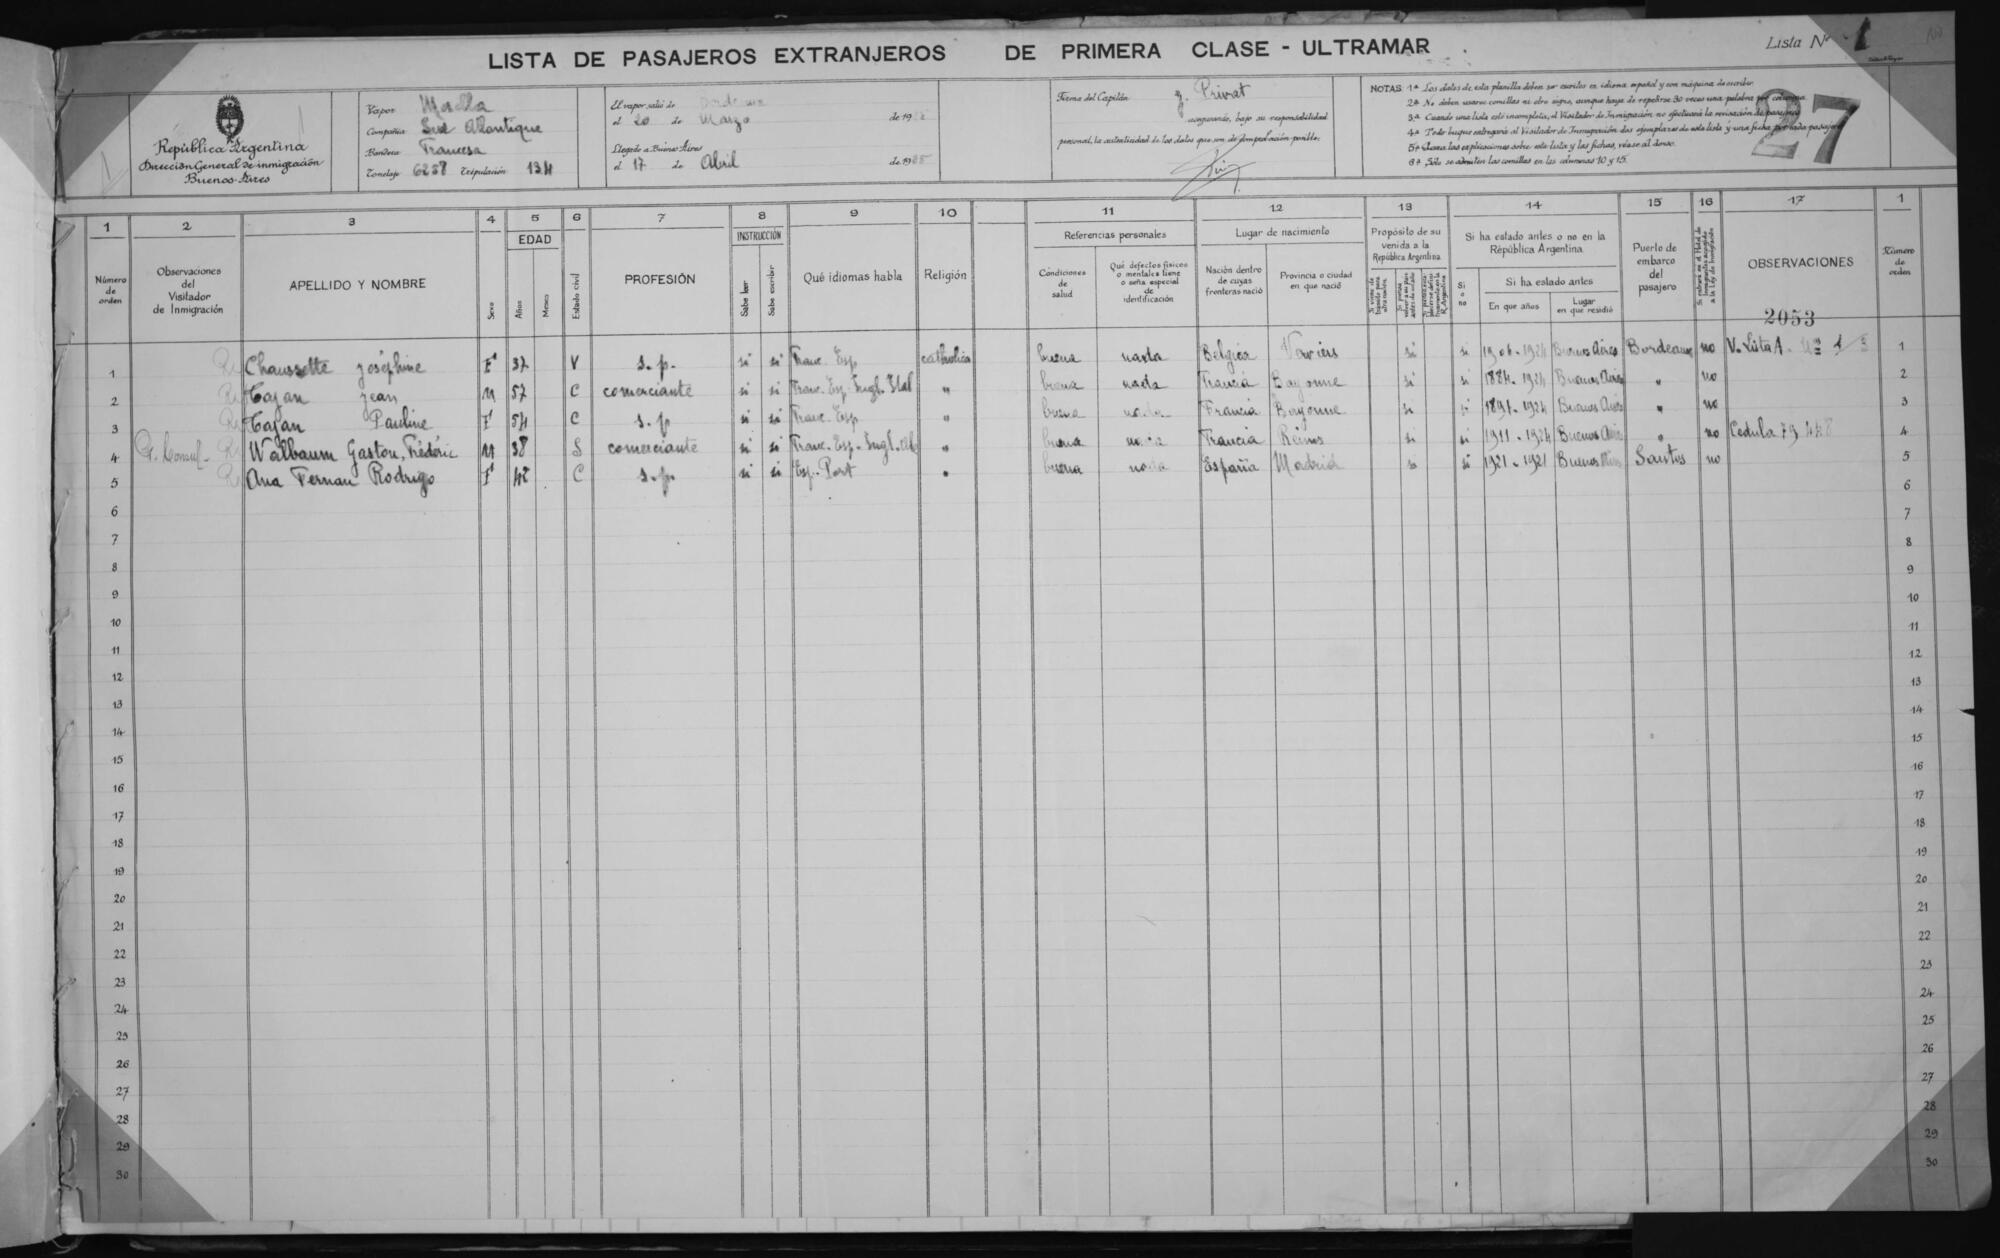 LISTA DE PASAJEROS EXTRANJEROS DE PRIMERA CLASE - ULTRAMAR
Lista Nº 1
República Argentina
Dirección General de inmigración
Buenos Aires
Vapor Mosella
Compañía Sud Atlantique
Bandera Francesa
Tonelaje 6258 Tripulación 134
El vapor salió de Bordeaux
el 20 de Marzo de 19
Llegado a Buenos Aires
el 17 de Abril de 1925
Firma del Capitán J. Privat
asegurando, bajo su responsabilidad
personal, la autenticidad de los datos que son de comprobación posible.
NOTAS 1ª Los datos de esta planilla deben ser escritos en idioma español y con máquina de escribir.
2ª No deben usarse comillas ni otro signo, aunque haya de repetirse 30 veces una palabra por columna.
3ª Cuando una lista esté incompleta, el Visitador de Inmigración no efectuará la revisación de pasajeros
4ª Todo buque entregará al Visitador de Inmigración dos ejemplares de esta lista y una ficha por cada pasajero
5ª Léanse las explicaciones sobre esta lista y las fichas, véase al dorso.
6ª Sólo se admiten las comillas en las columnas 10 y 15.
27
1 2 3 4 5 6 7 8 9 10 11 12 13 14 15 16 17 1
Número de orden
Observaciones del Visitador de Inmigración
APELLIDO Y NOMBRE
Sexo
EDAD
Años
Meses
Estado civil
PROFESIÓN
INSTRUCCIÓN
Sabe leer
Sabe escribir
Qué idiomas habla
Religión
Referencias personales
Condiciones de salud
Qué defectos físicos o mentales tiene o seña especial de identificación
Lugar de nacimiento
Nación dentro de cuyas fronteras nació
Provincia o ciudad en que nació
Propósito de su venida a la República Argentina
Si ha estado antes o no en la República Argentina
Si o no
Si ha estado antes
En que años
Lugar en que residió
Puerto de embarco del pasajero
OBSERVACIONES
Número de orden
2053
1 Chaussette Joséphine F 37 V s.p. si si Franc. Esp catholica buena nada Belgica Verviers si si 1906-1924 Buenos Aires Bordeaux no V. Lista A 1
2 Tajan Jean M 57 C comerciante si si Franc. Esp. Ingl. Ital " buena nada Francia Bayonne si si 1884-1924 Buenos Aires " no 2
3 Tajan Pauline F 54 C s.p si si Franc. Esp " buena nada Francia Bayonne si si 1891-1924 Buenos Aires " no 3
4 Walbaum Gaston, Frédéric M 38 S comerciante si si Franc. Esp. Ingl. " buena nada Francia Reims si si 1911-1924 Buenos Aires " no Cedula 79448 4
5 Ana Fernan Rodrigo F 48 C s.p. si si Esp. Port " buena nada España Madrid si si 1921-1921 Buenos Aires Santos no 5
6 6
7 7
8 8
9 9
10 10
11 11
12 12
13 13
14 14
15 15
16 16
17 17
18 18
19 19
20 20
21 21
22 22
23 23
24 24
25 25
26 26
27 27
28 28
29 29
30 30